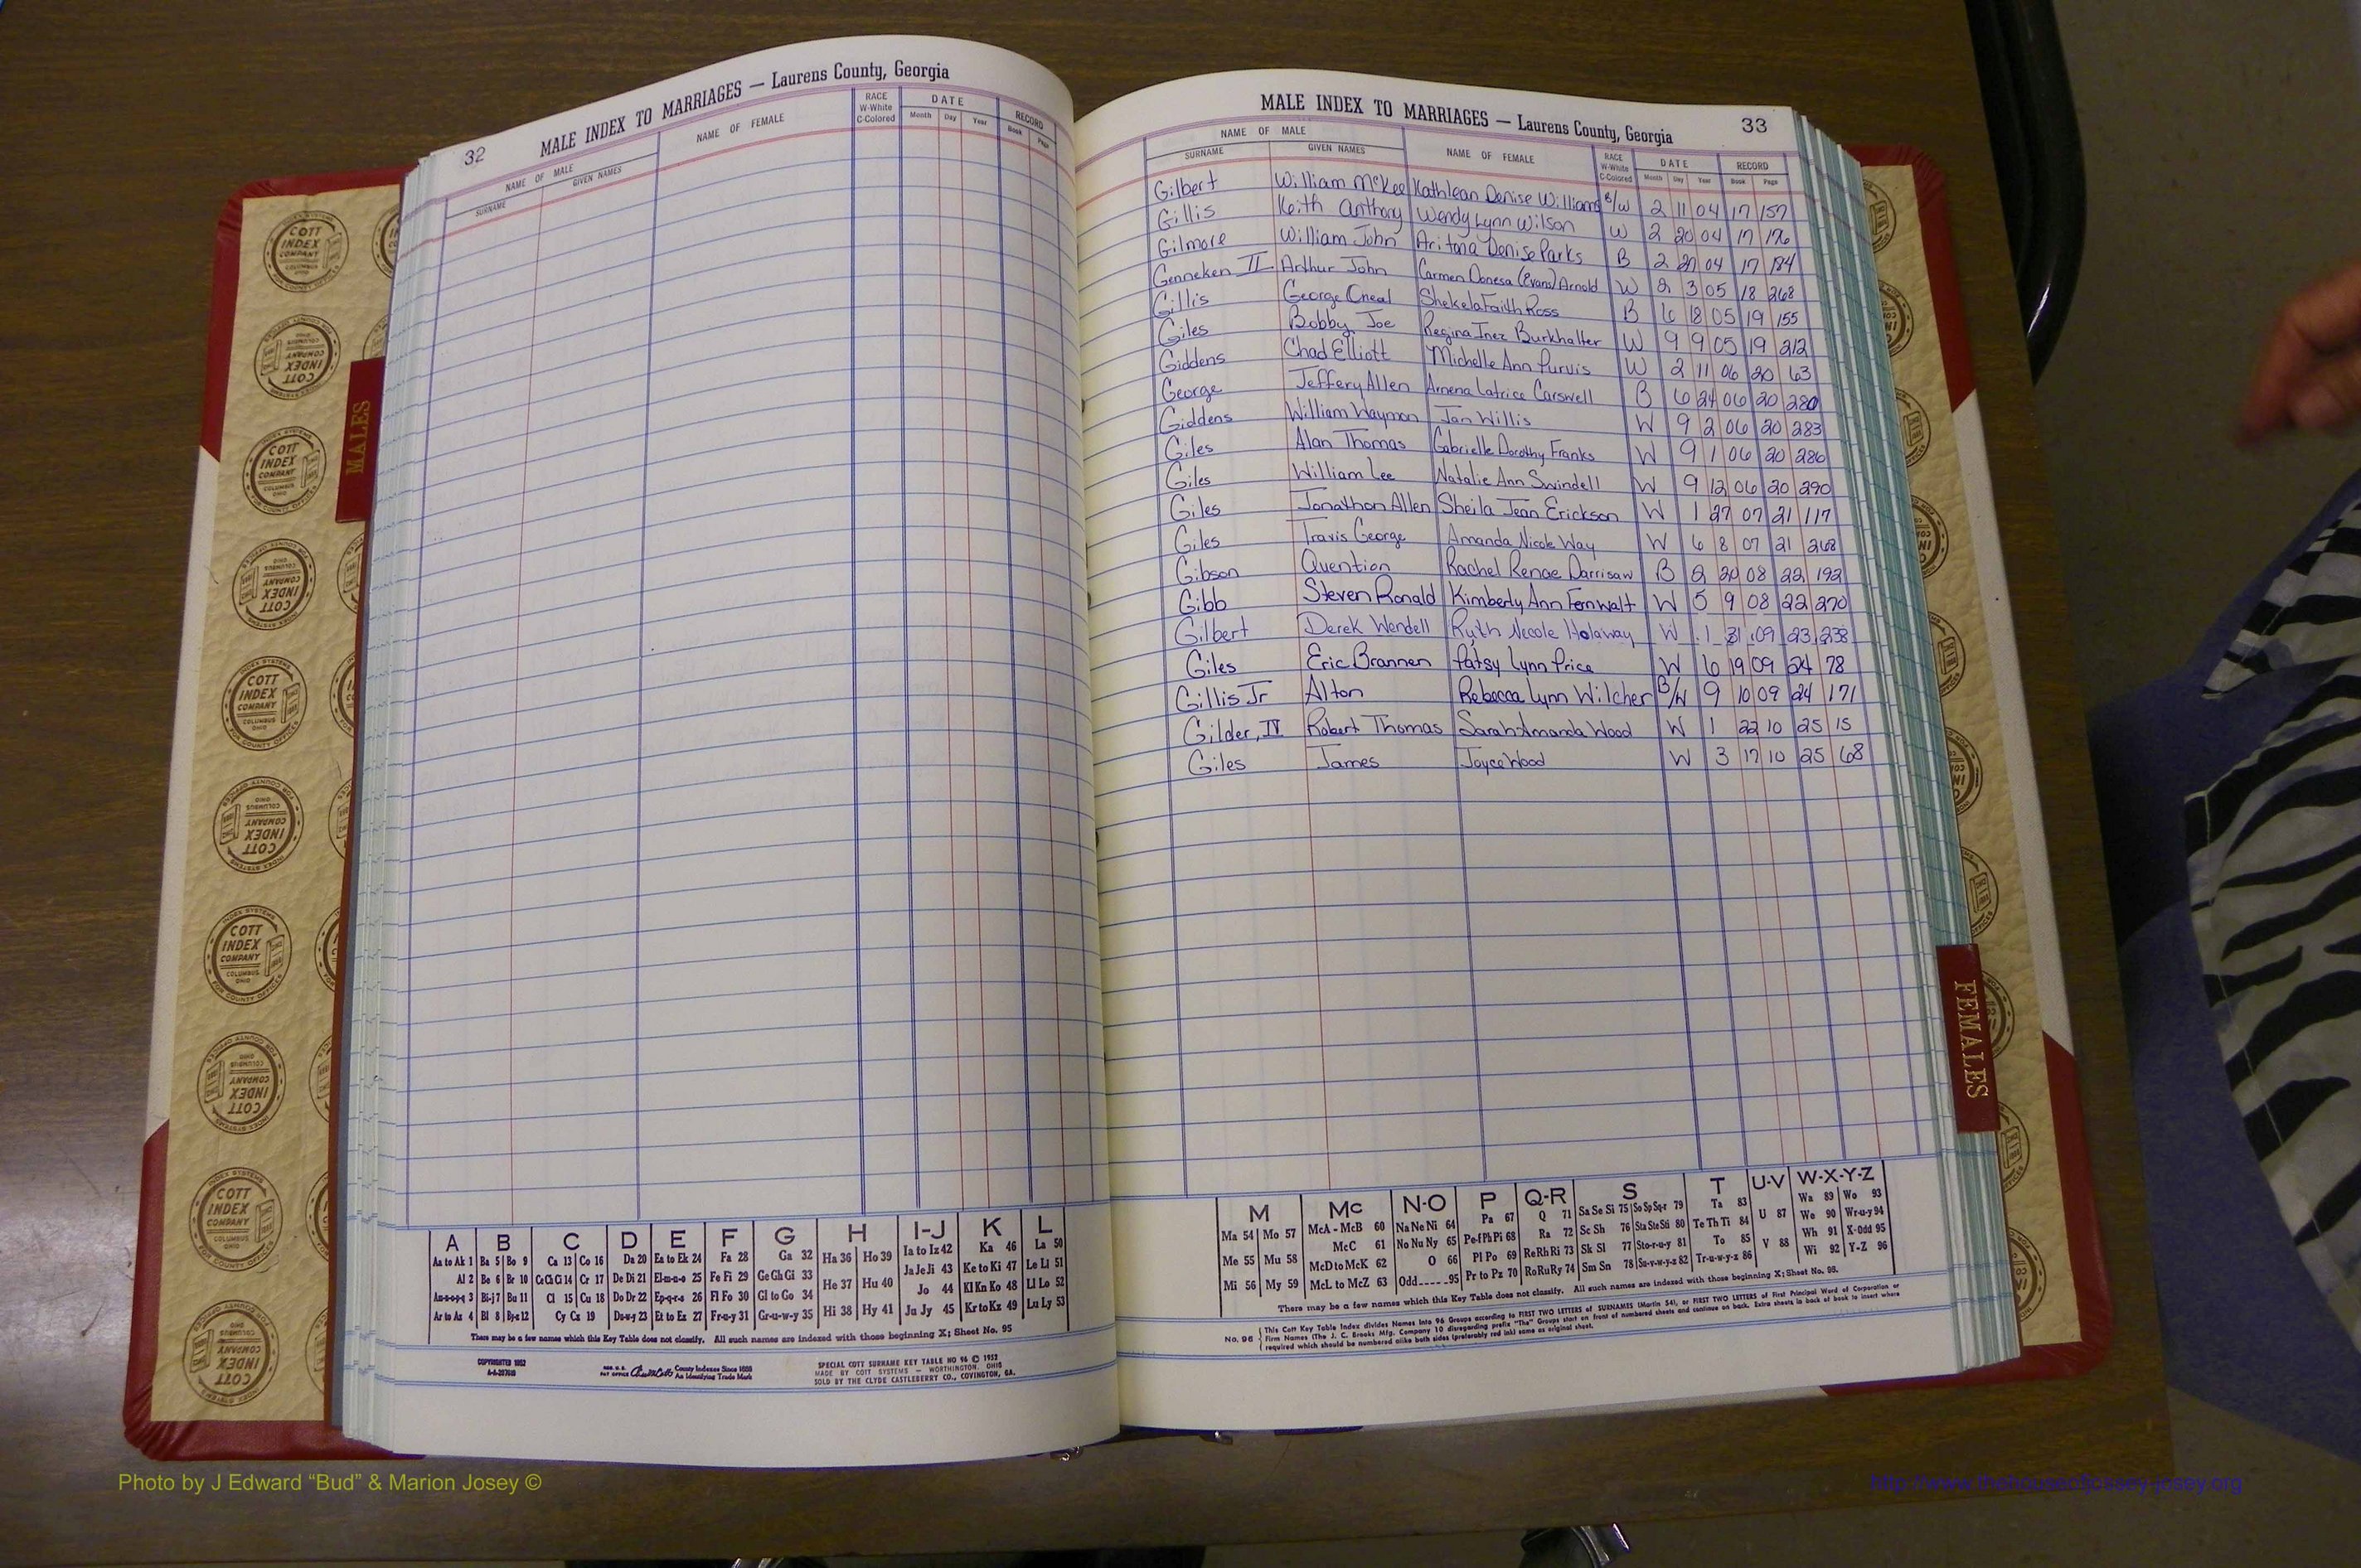 32
MALE INDEX TO MARRIAGES — Laurens County, Georgia
NAME OF MALE
SURNAME GIVEN NAMES
NAME OF FEMALE
RACE W-White C-Colored
DATE
Month Day Year
RECORD
Book Page
MALES
COTT INDEX COMPANY COLUMBUS OHIO
INDEX SYSTEMS FOR COUNTY OFFICES
A B C D E F G H I-J K L
Aa to Ak 1 Ba 5 Bo 9 Ca 13 Co 16 Da 20 Ea to Ek 24 Fa 28 Ga 32 Ha 36 Ho 39 Ia to Iz 42 Ka 46 La 50
Al 2 Be 6 Br 10 Ce Ch Ci 14 Cr 17 De Di 21 El-m-n-o 25 Fe Fi 29 Ge Gh Gi 33 He 37 Hu 40 Ja Je Ji 43 Ke to Ki 47 Le Li 51
Am-n-o-p-q 3 Bi-j 7 Bu 11 Cl 15 Cu 18 Do Dr 22 Ep-q-r-s 26 Fl Fo 30 Gl to Go 34 Hi 38 Hy 41 Jo 44 Kl Kn Ko 48 Ll Lo 52
Ar to Az 4 Bl 8 By-z 12 Cy Cz 19 Du-w-y 23 Et to Ez 27 Fr-u-y 31 Gr-u-w-y 35 Ju Jy 45 Kr to Kz 49 Lu Ly 53
There may be a few names which this Key Table does not classify. All such names are indexed with those beginning X; Sheet No. 95
COPYRIGHTED 1952
County Indexes Since 1888
An Identifying Trade Mark
SPECIAL COTT SURNAME KEY TABLE NO 96 © 1952
MADE BY COTT SYSTEMS — WORTHINGTON, OHIO
SOLD BY THE CLYDE CASTLEBERRY CO., COVINGTON, GA.
MALE INDEX TO MARRIAGES — Laurens County, Georgia 33
NAME OF MALE
SURNAME GIVEN NAMES
NAME OF FEMALE
RACE W-White C-Colored
DATE
Month Day Year
RECORD
Book Page
Gilbert William McKee Kathlean Denise Williams B/W 2 11 04 17 157
Gillis Keith Anthony Wendy Lynn Wilson W 2 20 04 17 176
Gilmore William John Aritona Denise Parks B 2 27 04 17 184
Genneken II Arthur John Carmen Donesa (Evans) Arnold W 2 3 05 18 268
Gillis George Oneal Shekela Faith Ross B 6 18 05 19 155
Giles Bobby Joe Regina Inez Burkhalter W 9 9 05 19 212
Giddens Chad Elliott Michelle Ann Purvis W 2 11 06 20 63
George Jeffery Allen Arnena Latrice Carswell B 6 24 06 20 280
Giddens William Waymon Jan Willis W 9 2 06 20 283
Giles Alan Thomas Gabrielle Dorothy Franks W 9 1 06 20 286
Giles William Lee Natalie Ann Swindell W 9 12 06 20 290
Giles Jonathon Allen Sheila Jean Erickson W 1 27 07 21 117
Giles Travis George Amanda Nicole Way W 6 8 07 21 268
Gibson Quention Rachel Renae Darrisaw B 2 20 08 22 192
Gibb Steven Ronald Kimberly Ann Fernwalt W 5 9 08 22 270
Gilbert Derek Wendell Ruth Necole Holaway W 1 31 09 23 238
Giles Eric Brannen Patsy Lynn Price W 6 19 09 24 78
Gillis Jr Alton Rebecca Lynn Wilcher B/W 9 10 09 24 171
Gilder, IV Robert Thomas Sarah Amanda Wood W 1 22 10 25 15
Giles James Joyce Wood W 3 17 10 25 68
FEMALES
M Mc N-O P Q-R S T U-V W-X-Y-Z
Ma 54 Mo 57 McA - McB 60 Na Ne Ni 64 Pa 67 Q 71 Sa Se Si 75 So Sp Sq-r 79 Ta 83 U 87 Wa 89 Wo 93
Me 55 Mu 58 McC 61 No Nu Ny 65 Pe-f Ph Pi 68 Ra 72 Sc Sh 76 Sta Ste Sti 80 Te Th Ti 84 V 88 We 90 Wr-u-y 94
Mi 56 My 59 McD to McK 62 O 66 Pl Po 69 Re Rh Ri 73 Sk Sl 77 Sto-r-u-y 81 To 85 Wh 91 X-Odd 95
McL to McZ 63 Odd 95 Pr to Pz 70 Ro Ru Ry 74 Sm Sn 78 Su-v-w-y-z 82 Tr-u-w-y-z 86 Wi 92 Y-Z 96
There may be a few names which this Key Table does not classify. All such names are indexed with those beginning X; Sheet No. 95.
No. 96 { This Cott Key Table Index divides Names into 96 Groups according to FIRST TWO LETTERS of SURNAMES (Martin 54), or FIRST TWO LETTERS of First Principal Word of Corporation or
Firm Names (The J. C. Brooks Mfg. Company 10 disregarding prefix "The" Groups start on front of numbered sheets and continue on back. Extra sheets in back of book to insert where
required which should be numbered alike both sides (preferably red ink) same as original sheet.
Photo by J Edward “Bud” & Marion Josey ©
http://www.thehouseofjossey-josey.org